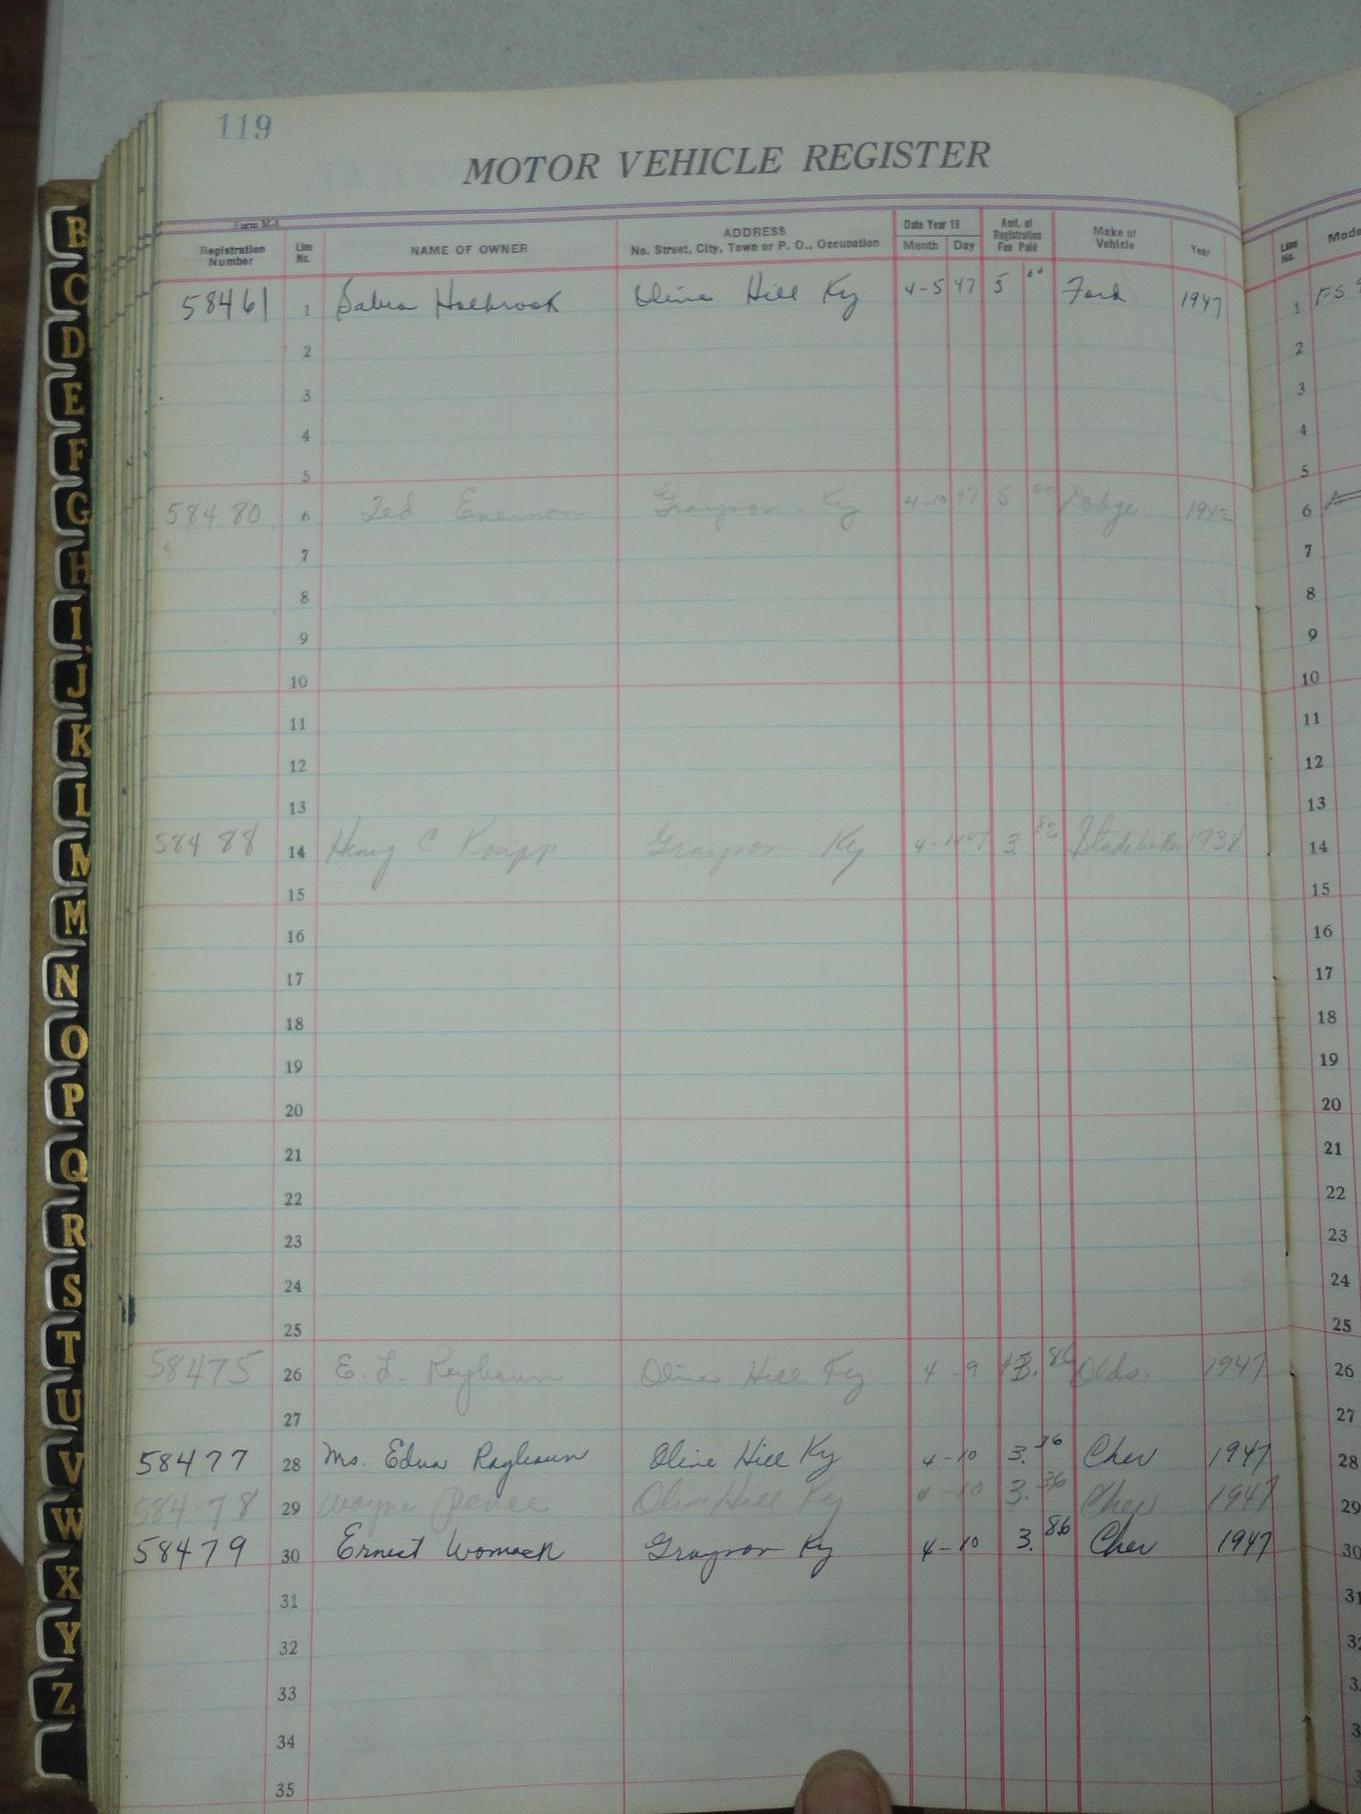 119
MOTOR VEHICLE REGISTER
Form M-1
Registration Number Line No. NAME OF OWNER ADDRESS No. Street, City, Town or P. O., Occupation Date Year 19 Month Day Amt. of Registration Fee Paid Make of Vehicle Year Line No. Mode
58461 1 Sabra Holbrook Olive Hill Ky 4-5 47 5 00 Ford 1947 1
2 2
3 3
4 4
5 5
58480 6 Ted Grayson Ky 4-10 47 5 00 Dodge 1942 6
7 7
8 8
9 9
10 10
11 11
12 12
13 13
58488 14 Henry C Knipp Grayson Ky 3. 82 Studebaker 1938 14
15 15
16 16
17 17
18 18
19 19
20 20
21 21
22 22
23 23
24 24
25 25
58475 26 E. L. Rayburn Olive Hill Ky 4-9 86 Olds. 1947 26
27 27
58477 28 Ms. Edna Rayburn Olive Hill Ky 4-10 3. 36 Chev 1947 28
58478 29 Wayne Pence Olive Hill Ky 4-10 3. 36 Chev 1947 29
58479 30 Ernest Womack Grayson Ky 4-10 3. 86 Chev 1947 30
31 31
32
33
34
35
B
C
D
E
F
G
H
I
J
K
L
M
M
N
O
P
Q
R
S
T
U
V
W
X
Y
Z